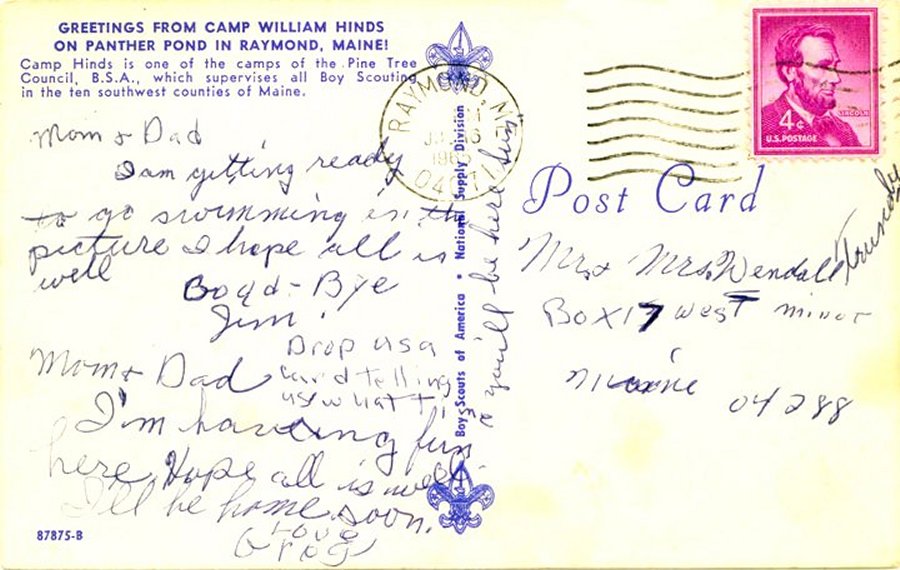 GREETINGS FROM CAMP WILLIAM HINDS
ON PANTHER POND IN RAYMOND, MAINE!
Camp Hinds is one of the camps of the Pine Tree
Council, B.S.A., which supervises all Boy Scouting
in the ten southwest counties of Maine.
Mom & Dad
I am getting ready
to go swimming in the
picture I hope all is
well
Good-Bye
Jim!
Drop us a
card telling
us what t
Mom & Dad
I'm having fun
here. Hope all is well.
I'll be home soon.
Love
Greg
87875-B
Boy Scouts of America • National Supply Division
you'll be here Sun
RAYMOND, ME
16
04071
LINCOLN
4¢
U.S. POSTAGE
Post Card
Mr. & Mrs. Wendall
Box 17 West Minor
Maine
04288